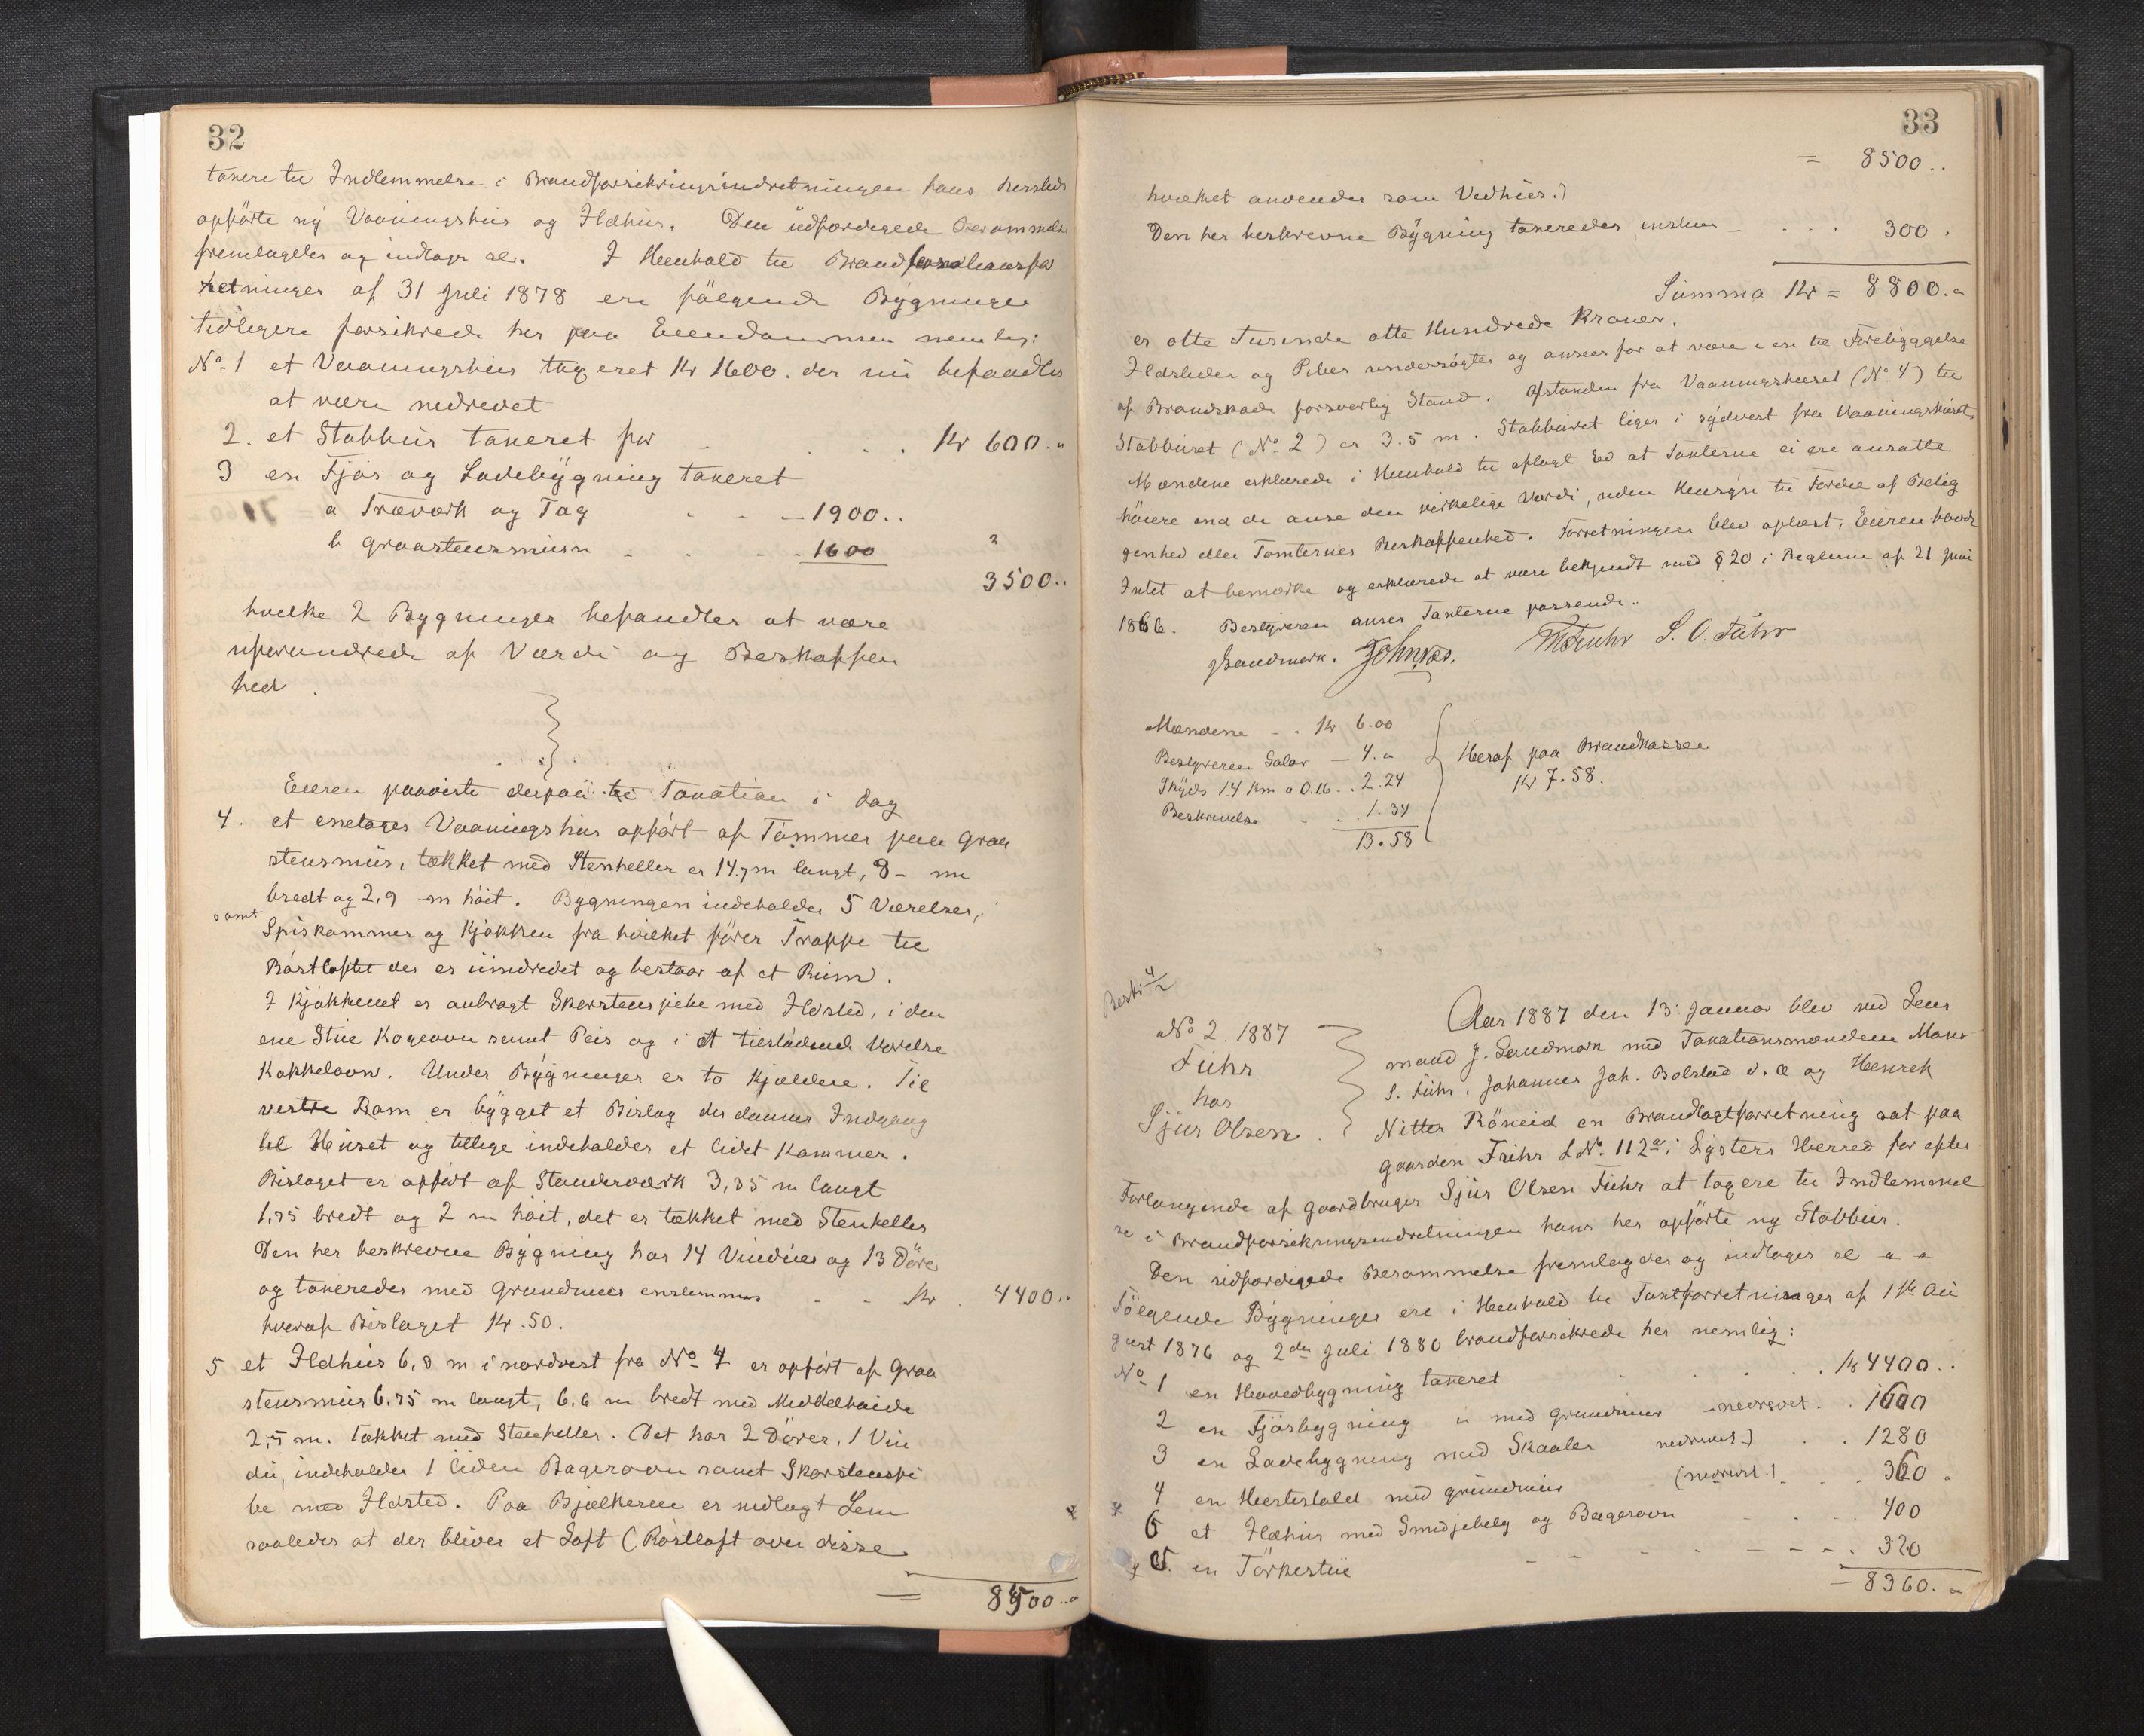 32
taxere til Indlemmelse i Brandforsikringsindretningen hans hersteds
opførte ny Vaaningshus og Ildhus. Den udfærdigede Berammelse
fremlagdes og indtages al. I Henhold til
retninger af 31 Juli 1878 ere følgende Bygninger
tidligere forsikrede her paa Eiendommen nemlig:
No. 1 et Vaaningshus taxeret Kr 1600. der nu befandtes
at være nedrevet
2. et Stabbur taxeret for Kr 600..
3 en Fjøs og Ladebygning taxeret
a Træværk og Tag - 1900..
b Graastensmuren - 1600
3500..
hvilke 2 Bygninger befandtes at være
uforandrede af Værdi og Beskaffen
hed
Eieren paaviste derpaa til Taxation i dag
4. et enetages Vaaningshus opført af Tømmer paa Graa
stensmur, tækket med Stenheller er 14.7 m langt, 8 - m
bredt og 2,9 m høit. Bygningen indeholder 5 Værelser,
samt Spiskammer og Kjøkken fra hvilket fører Trappe til
Røstloftet der er uindredet og bestaar af et Rum.
I Kjøkkenet er anbragt Skorstenspibe med Ildsted, i den
ene Stue Kogeovn samt Peis og i et tilstødende Værelse
Kakkelovn. Under Bygningen er to Kjældere. Til
vestre Ram er bygget et Bislag der danner Indgang
til Huset og tillige indeholder et lidet Kammer.
Bislaget er opført af Standerværk 3,35 m langt
1,75 bredt og 2 m høit, det er tækket med Stenheller
Den her beskrevne Bygning har 14 Vinduer og 13 Døre
og taxeredes med Grundmur enslemmes - - Kr. 4400..
hveraf Bislaget Kr. 50.
5 et Ildhus 6,8 m i nordvest fra No 4 er opført af Graa
stensmur 6.75 m langt, 6,6 m bredt med Middelhøide
2,5 m. Tækket med Stenheller. Det har 2 Dører, 1 Vin
du, indeholder 1 liden Bagerovn samt Skorstenspi
be med Ildsted. Paa Bjælkerne er nedlagt Lem
saaledes at der bliver et Loft (Røstloft over disse
= 8500..
33
= 8500..
hvilket anvendes som Vedhus.)
Den her beskrevne Bygning taxeredes - . . . 300.
Summa Kr = 8800.
er otte Tusinde otte Hundrede Kroner.
Ildsteder og Piber undersøgtes og ansees for at være i en til Forebyggelse
af Brandskade forsvarlig Stand. Afstanden fra Vaaningshuset (No. 4) til
Stabburet (No 2) er 3.5 m. Stabburet liger i sydvest fra Vaaningshuset
Mændene erklærede i Henhold til aflagt Ed at Taxterne ei ere ansatte
høiere end de anse den virkelige Værdi, uden Hensyn til Fordel af Belig
genhed eller Tomternes Beskaffenhed. Forretningen blev oplæst, Eieren havde
Intet at bemærke og erklærede at være bekjendt med § 20 i Reglerne af 21 Juni
1866. Bestyreren anser Taxterne passende.
J Sandmark. S. O. Fuhr
Mændene - . Kr 6.00
Bestyreren Salær - 4.
Skyds 14 Km a 0.16 . . 2.24
Beskrivelse . . 1.34
13.58
Heraf paa Brandkassen
Kr 7.58.
Beskr 4/2
No 2. 1887
Fuhr
hos
Sjur Olsen.
Aar 1887 den 13. Januar blev ved Lens
mand J. Sandmark med Taxationsmændene Mons
S. Fuhr, Johannes Joh. Bolstad v. a og Henrek
Nitter Røneid en Brandtaxtforretning sat paa
gaarden Fuhr L No. 112a i Lysters Herred for efter
Forlangende af Gaardbruger Sjur Olsen Fuhr at taxere til Indlemmel
se i Brandforsikringsindretningen hans her opførte ny Stabbur.
Den udfærdigede Berammelse fremlagdes og indtages al
Følgende Bygninger ere i Henhold til Taxtforretninger af 1ste Au
gust 1876 og 2den Juli 1880 brandforsikrede her nemlig:
No. 1 en Hovedbygning taxeret . . . Kr 4400..
2 en Fjøsbygning " med Grundmur - nedrevet . . 1600
3 en Ladebygning med Skaaler nedrevet . . 1280
4 en Hestestald med grundmur (nedrevet.) . . 360.
6 et Ildhus med Smedjebelg og Bagerovn . . 400
5. en Tørkestue - - - - - - . 320
- 8360.